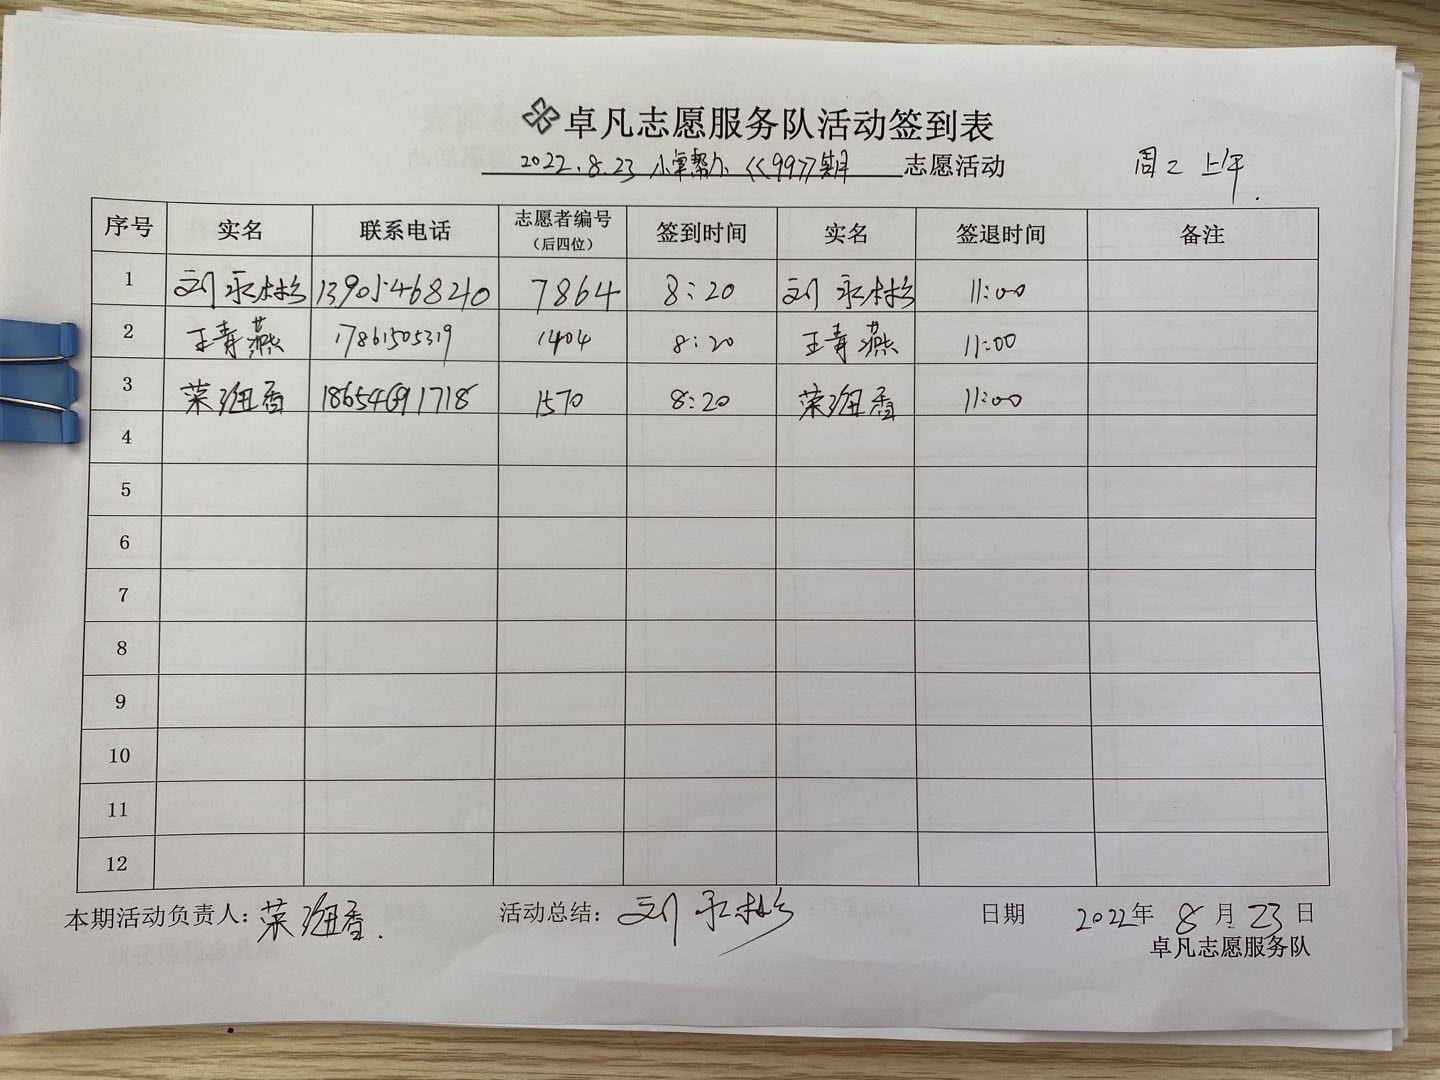 卓凡志愿服务队活动签到表
2022.8.23 小草帮厨《99》期 志愿活动 周二 上午
序号 实名 联系电话 志愿者编号（后四位） 签到时间 实名 签退时间 备注
1 刘永彬 13905468240 7864 8:20 刘永彬 11:00
2 王青燕 17861505319 1404 8:20 王青燕 11:00
3 荣海香 18654691718 1570 8:20 荣海香 11:00
4
5
6
7
8
9
10
11
12
本期活动负责人：荣海香. 活动总结：刘永彬 日期 2022年 8月 23日
卓凡志愿服务队